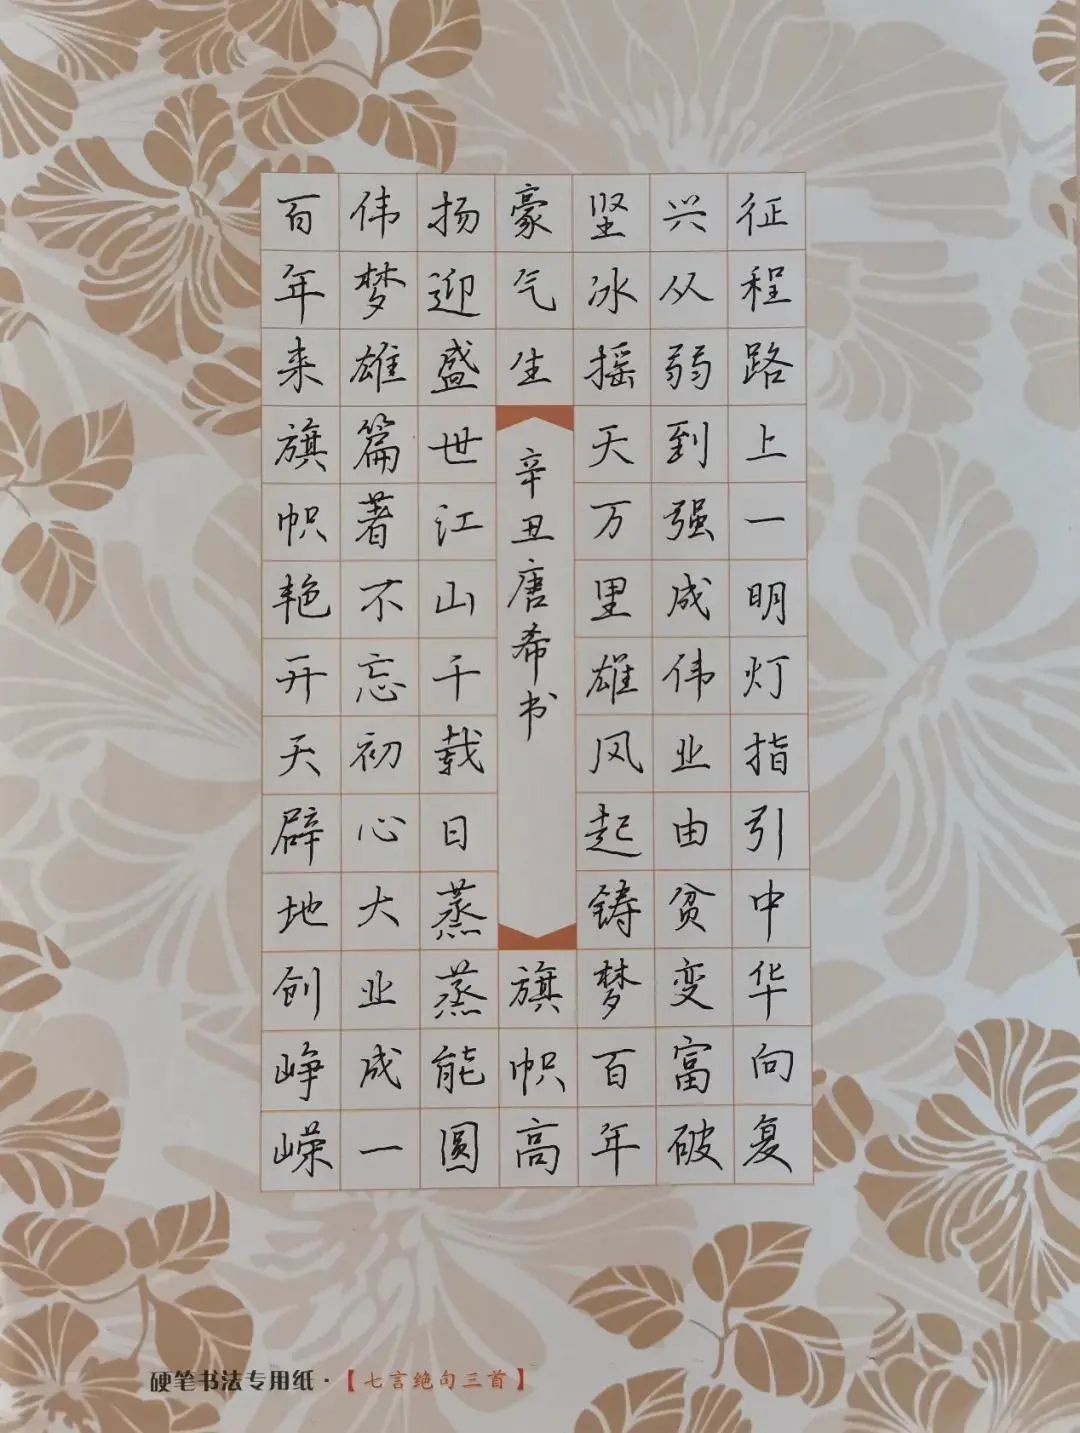 征程路上一明灯指引中华向复
兴从弱到强成伟业由贫变富破
坚冰摇天万里雄风起铸梦百年
豪气生
旗帜高
扬迎盛世江山千载日蒸蒸能圆
伟梦雄篇著不忘初心大业成一
百年来旗帜艳开天辟地创峥嵘
辛丑唐希书
硬笔书法专用纸·【七言绝句三首】